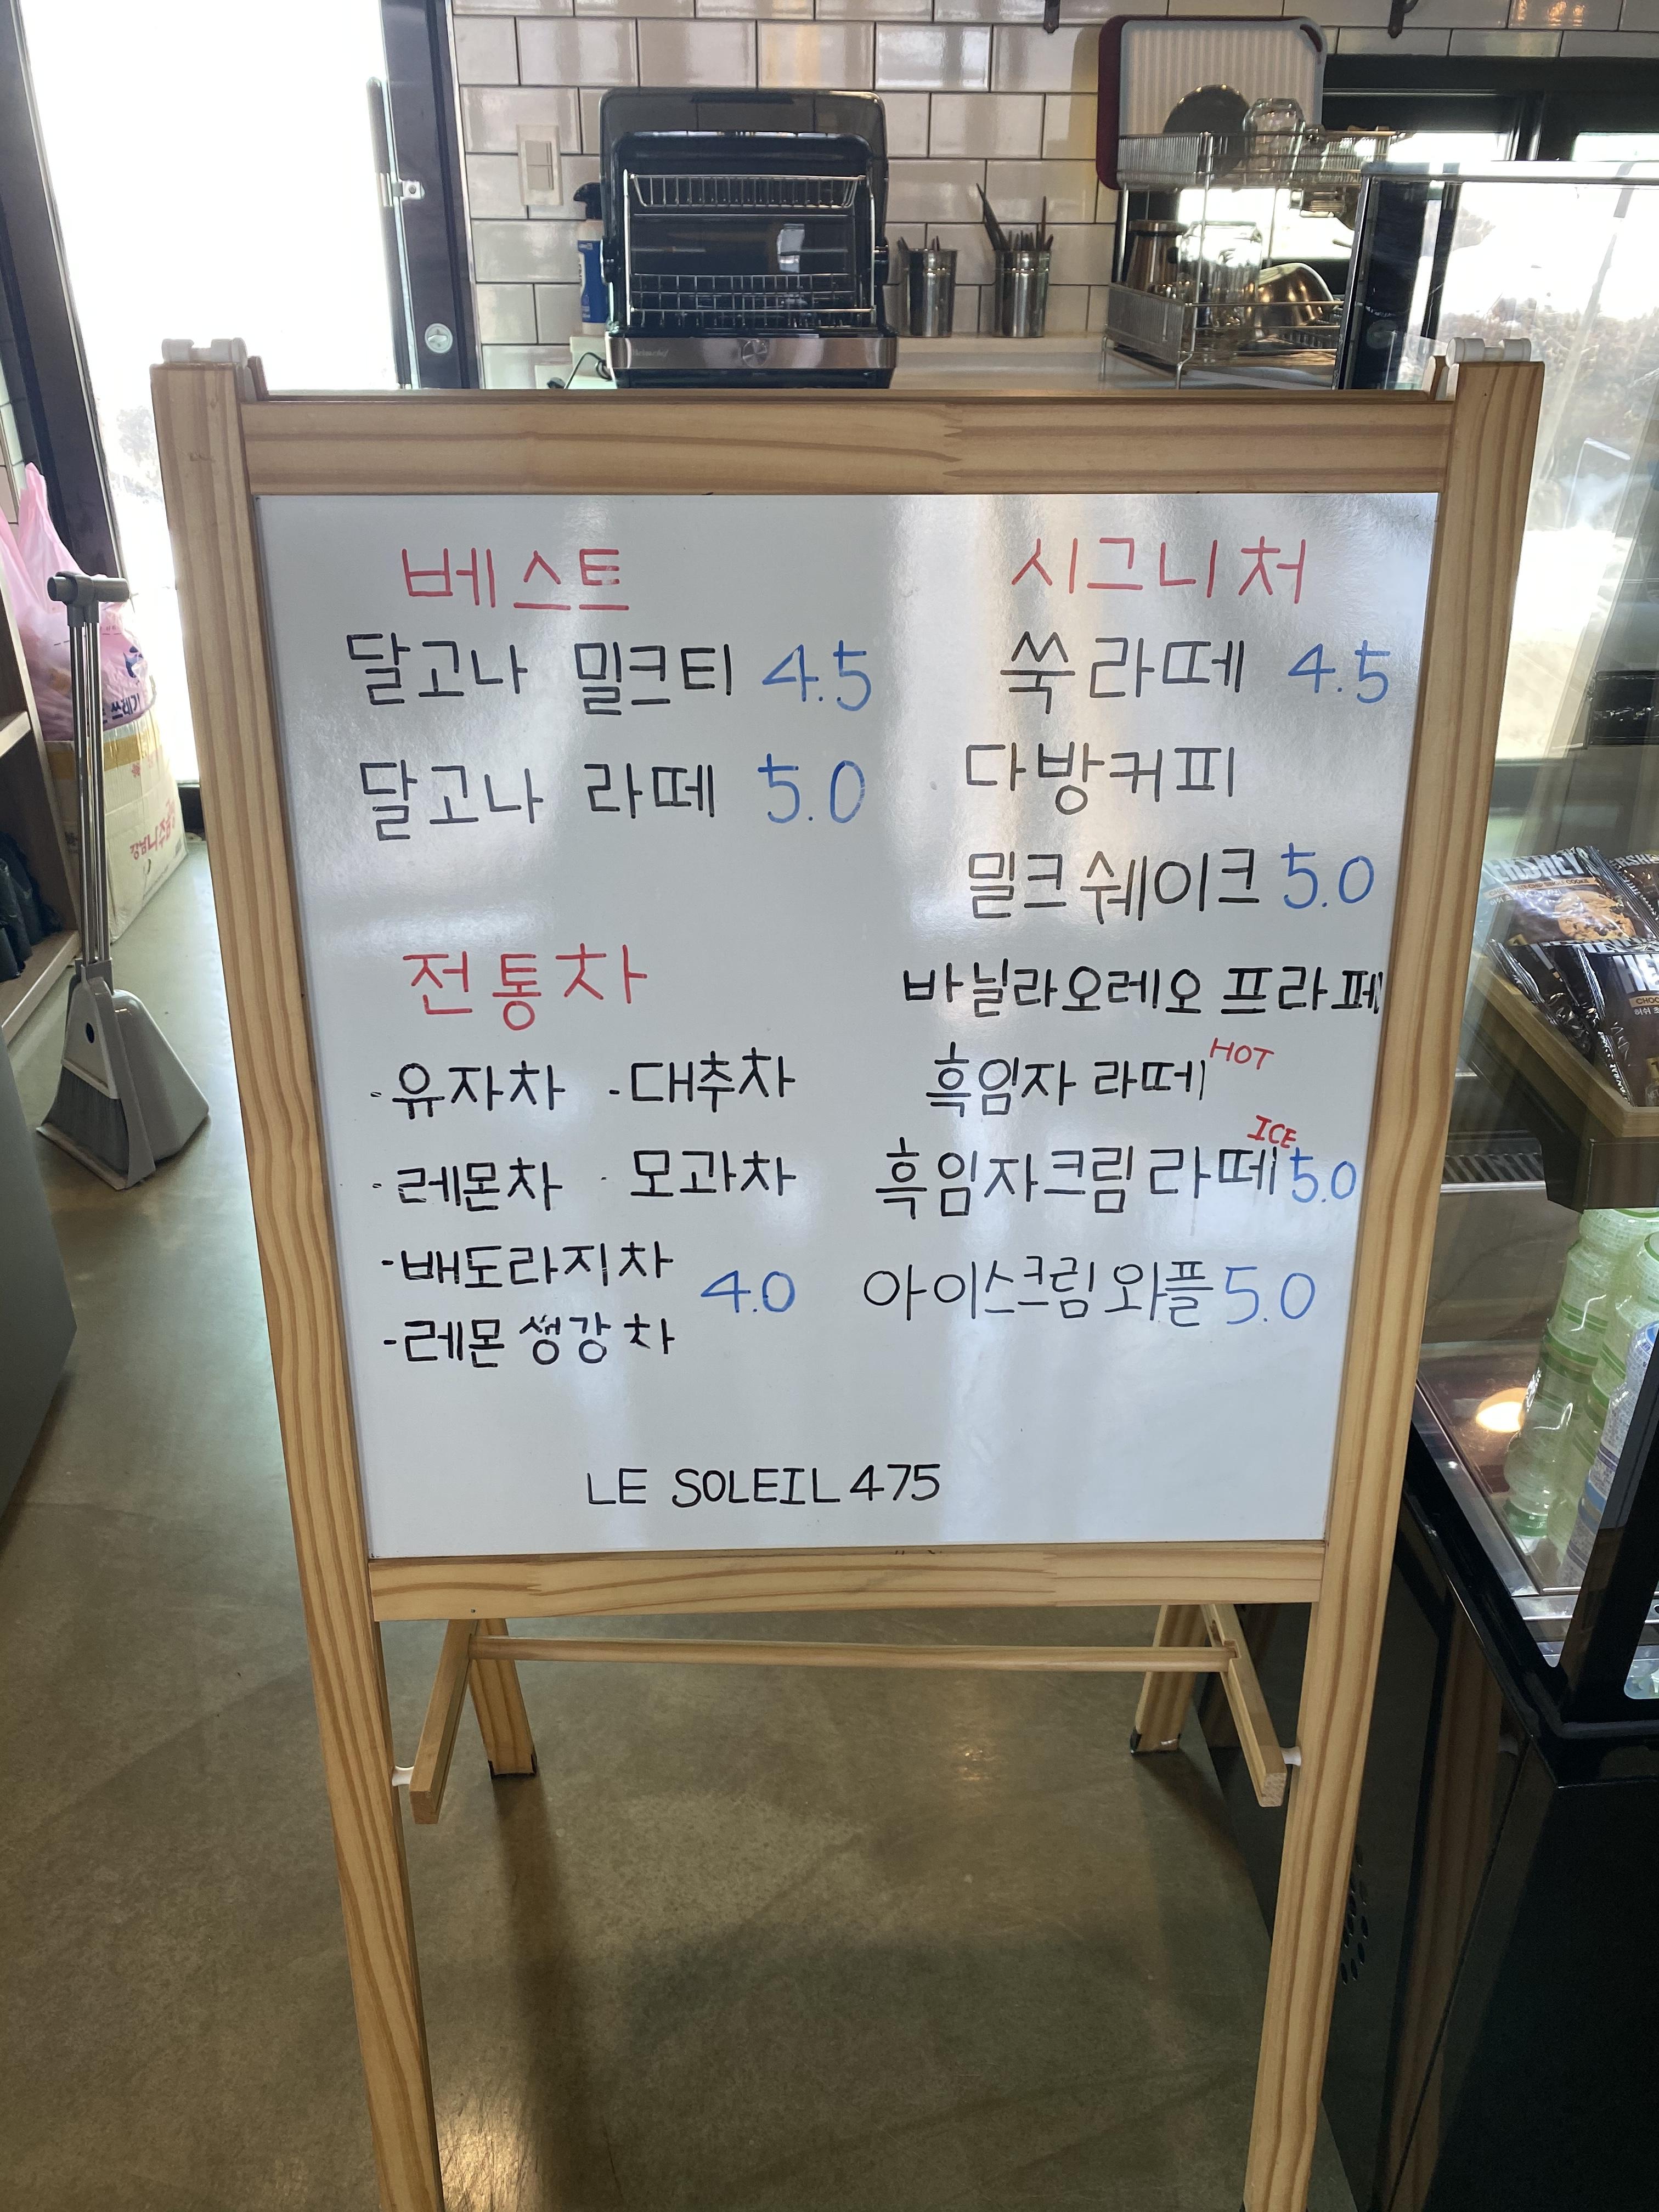 베스트
달고나 밀크티 4.5
달고나 라떼 5.0
전통차
-유자차 -대추차
-레몬차 -모과차
-배도라지차
4.0
-레몬생강차
시그니처
쑥라떼 4.5
다방커피
밀크쉐이크 5.0
바닐라오레오 프라페
흑임자 라떼 HOT
흑임자크림 라떼 ICE 5.0
아이스크림 와플 5.0
LE SOLEIL 475